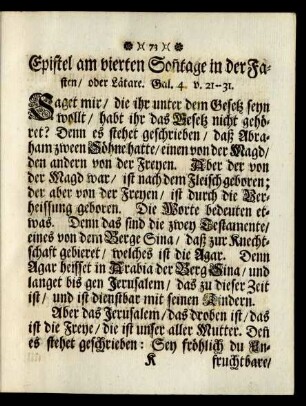 ❋ )( 73 )( ❋
Epistel am vierten Sontage in der Fa-
sten/ oder Lätare. Gal. 4. v. 21-31.
Saget mir/ die ihr unter dem Gesetz seyn
wollt/ habt ihr das Gesetz nicht gehö-
ret? Denn es stehet geschrieben/ daß Abra-
ham zween Söhne hatte/ einen von der Magd/
den andern von der Freyen. Aber der von
der Magd war/ ist nach dem Fleisch geboren;
der aber von der Freyen/ ist durch die Ver-
heissung geboren. Die Worte bedeuten et-
was. Denn das sind die zwey Testamente/
eines von dem Berge Sina/ daß zur Knecht-
schaft gebieret/ welches ist die Agar. Denn
Agar heisset in Arabia der Berg Sina/ und
langet bis gen Jerusalem/ das zu dieser Zeit
ist/ und ist dienstbar mit seinen Kindern.
Aber das Jerusalem/ das droben ist/ das
ist die Freye/ die ist unser aller Mutter. Deñ
es stehet geschrieben: Sey fröhlich du Un-
K fruchtbare/